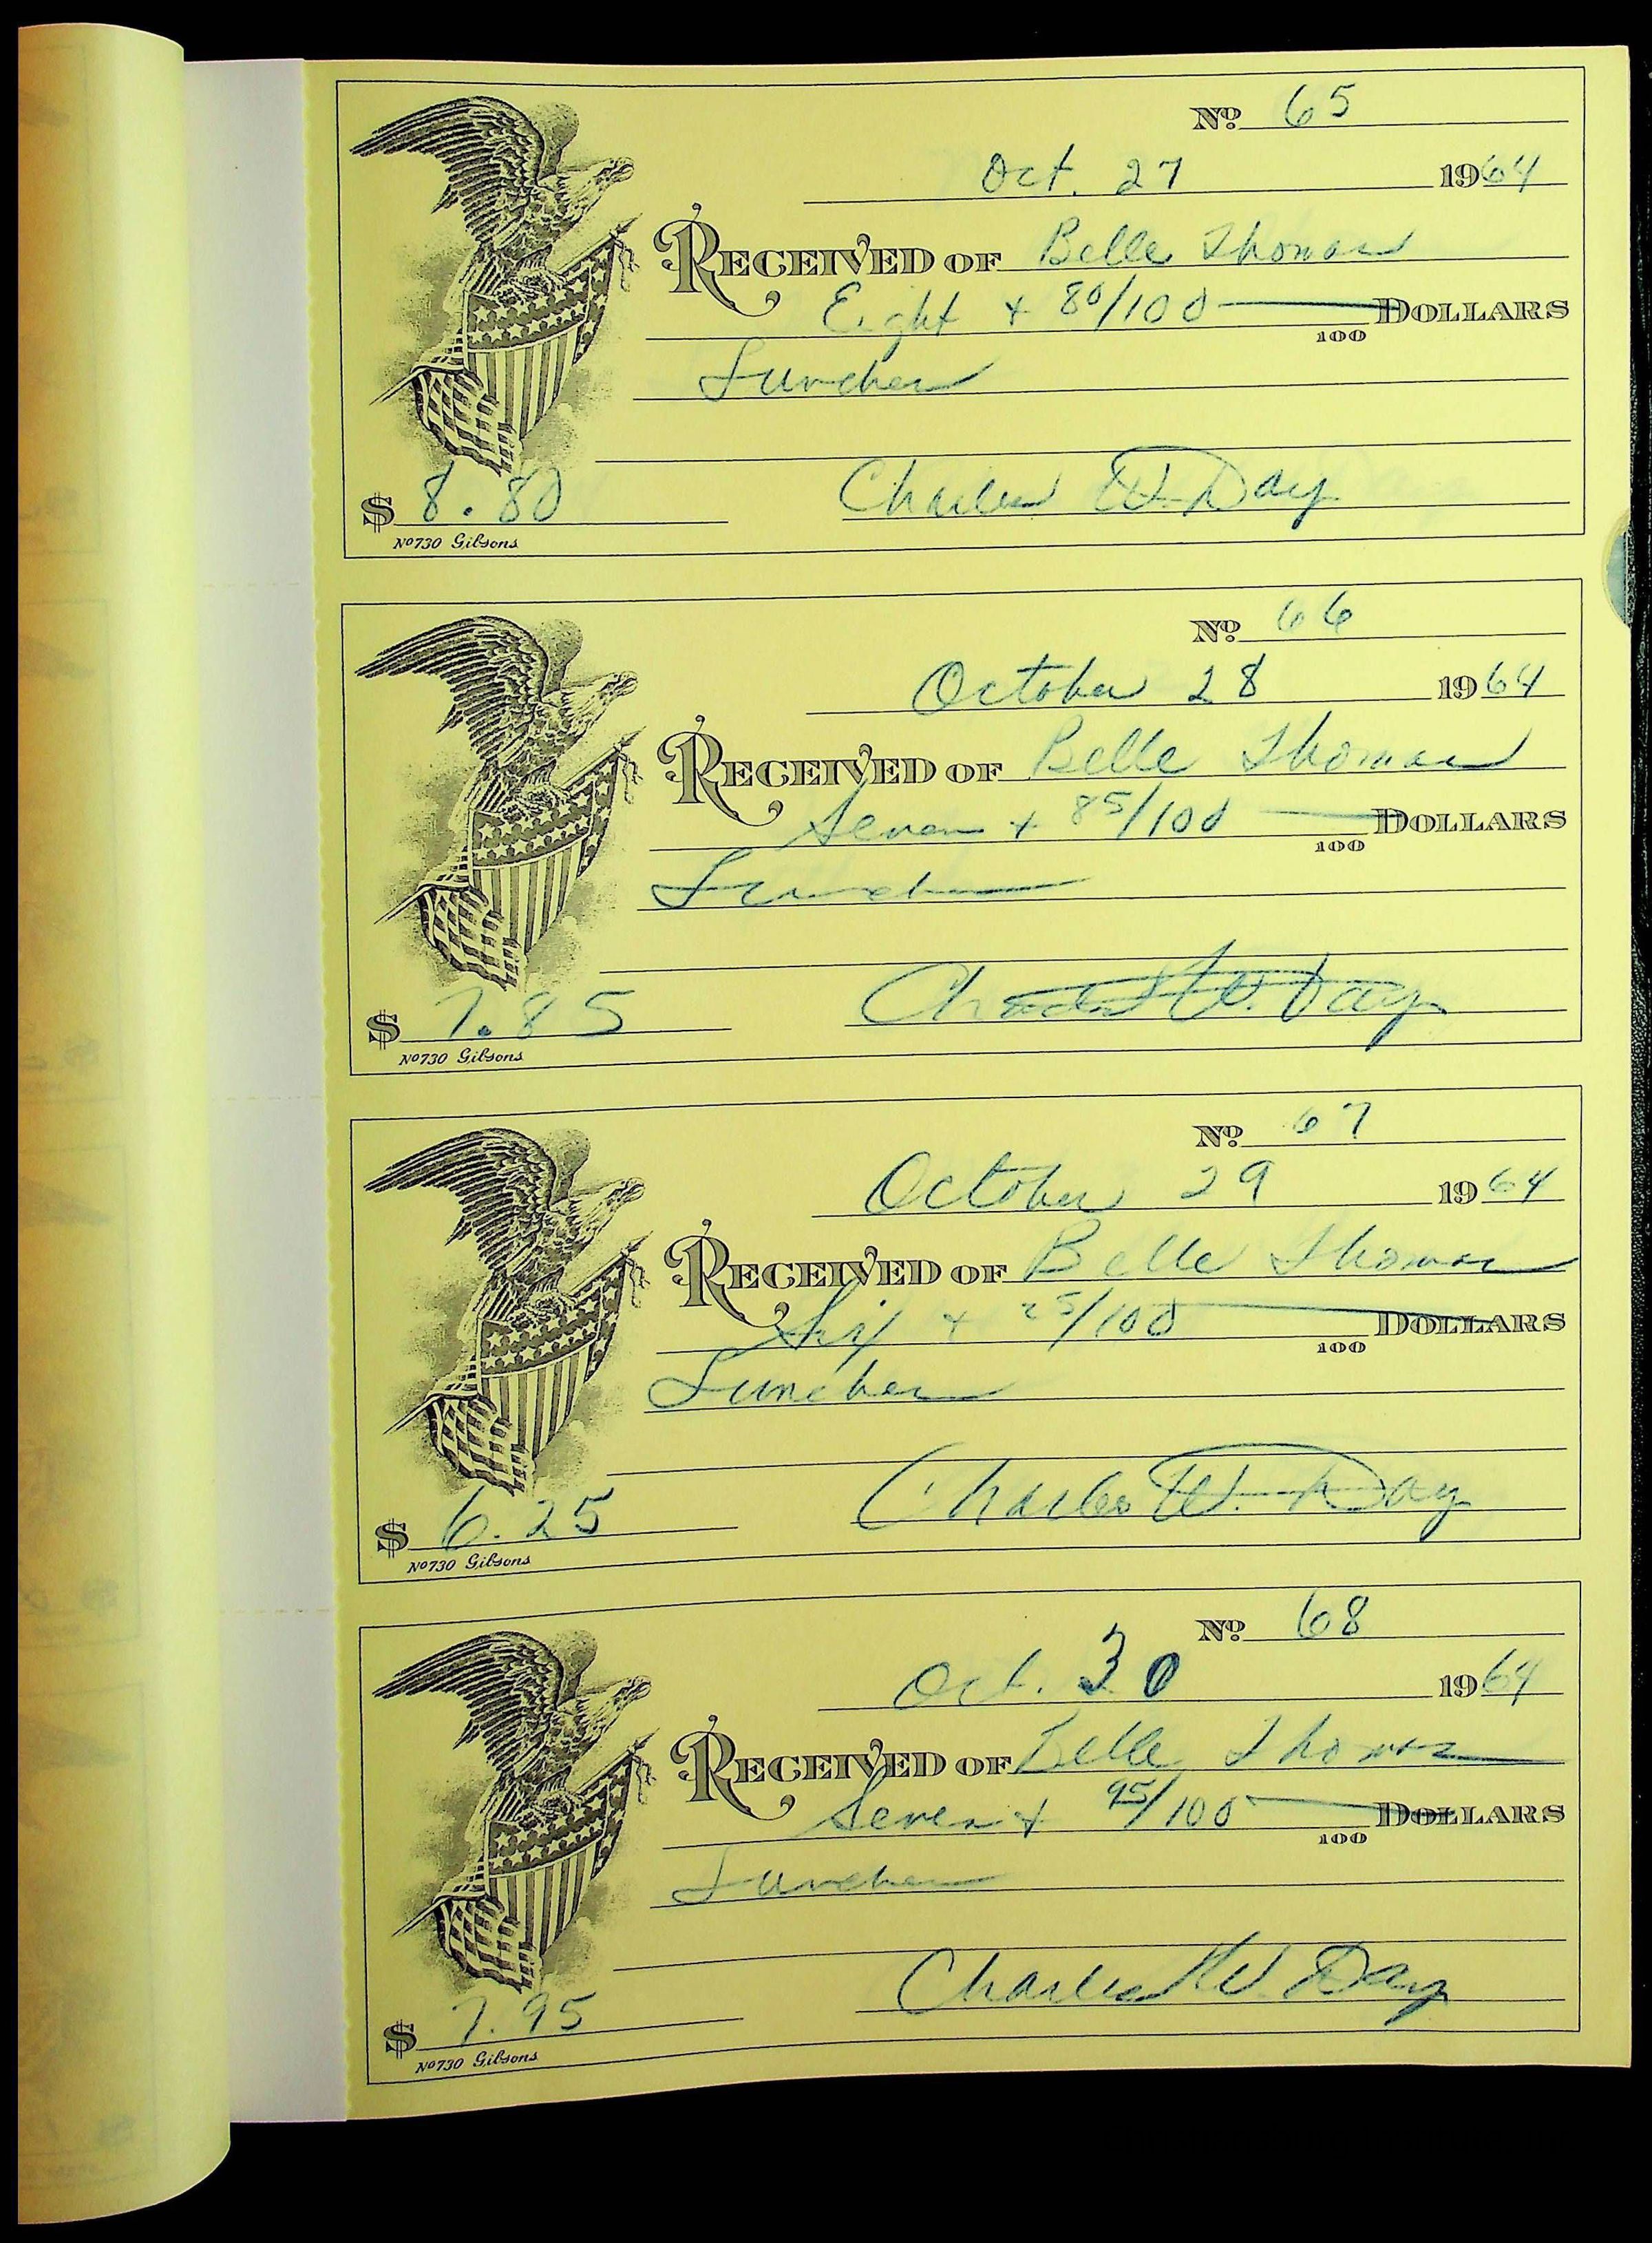 Nº 65
Oct. 27 1964
RECEIVED OF Belle Thomas
Eight + 80/100 DOLLARS
100
Lunches
$ 8.80 Charles W. Day
Nº 730 Gibsons
Nº 66
October 28 1964
RECEIVED OF Belle Thomas
Seven + 85/100 DOLLARS
100
Lunches
$ 7.85 Charles W. Day
Nº 730 Gibsons
Nº 67
October 29 1964
RECEIVED OF Belle Thomas
Six + 25/100 DOLLARS
100
Lunches
$ 6.25 Charles W. Day
Nº 730 Gibsons
Nº 68
Oct. 30 1964
RECEIVED OF Belle Thomas
Seven + 95/100 DOLLARS
100
Lunches
$ 7.95 Charles W. Day
Nº 730 Gibsons